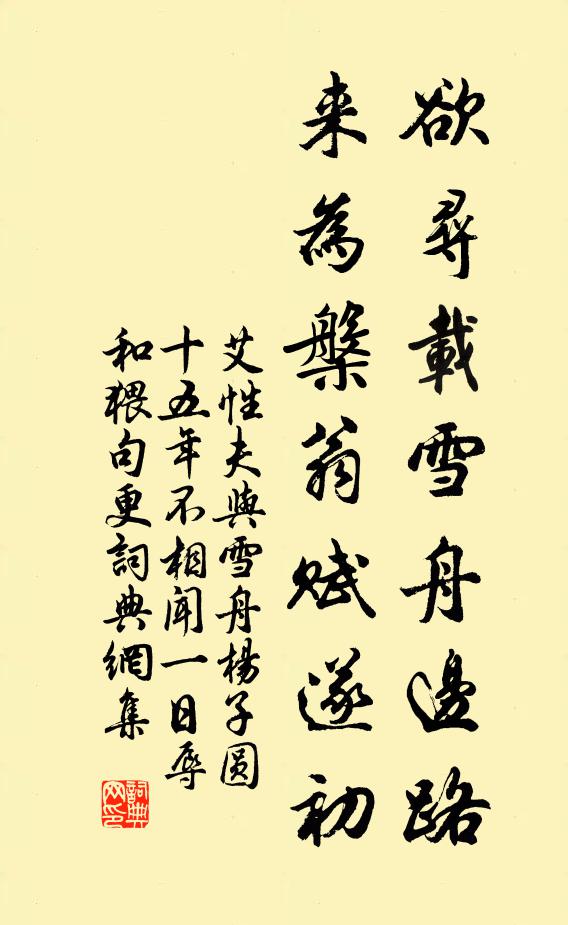 欲尋載雪舟邊路
来為槃翁賦遂初
艾性夫與雪舟楊子圆
十五年不相聞一日辱
和猥句更詞典網集
詞典
网印